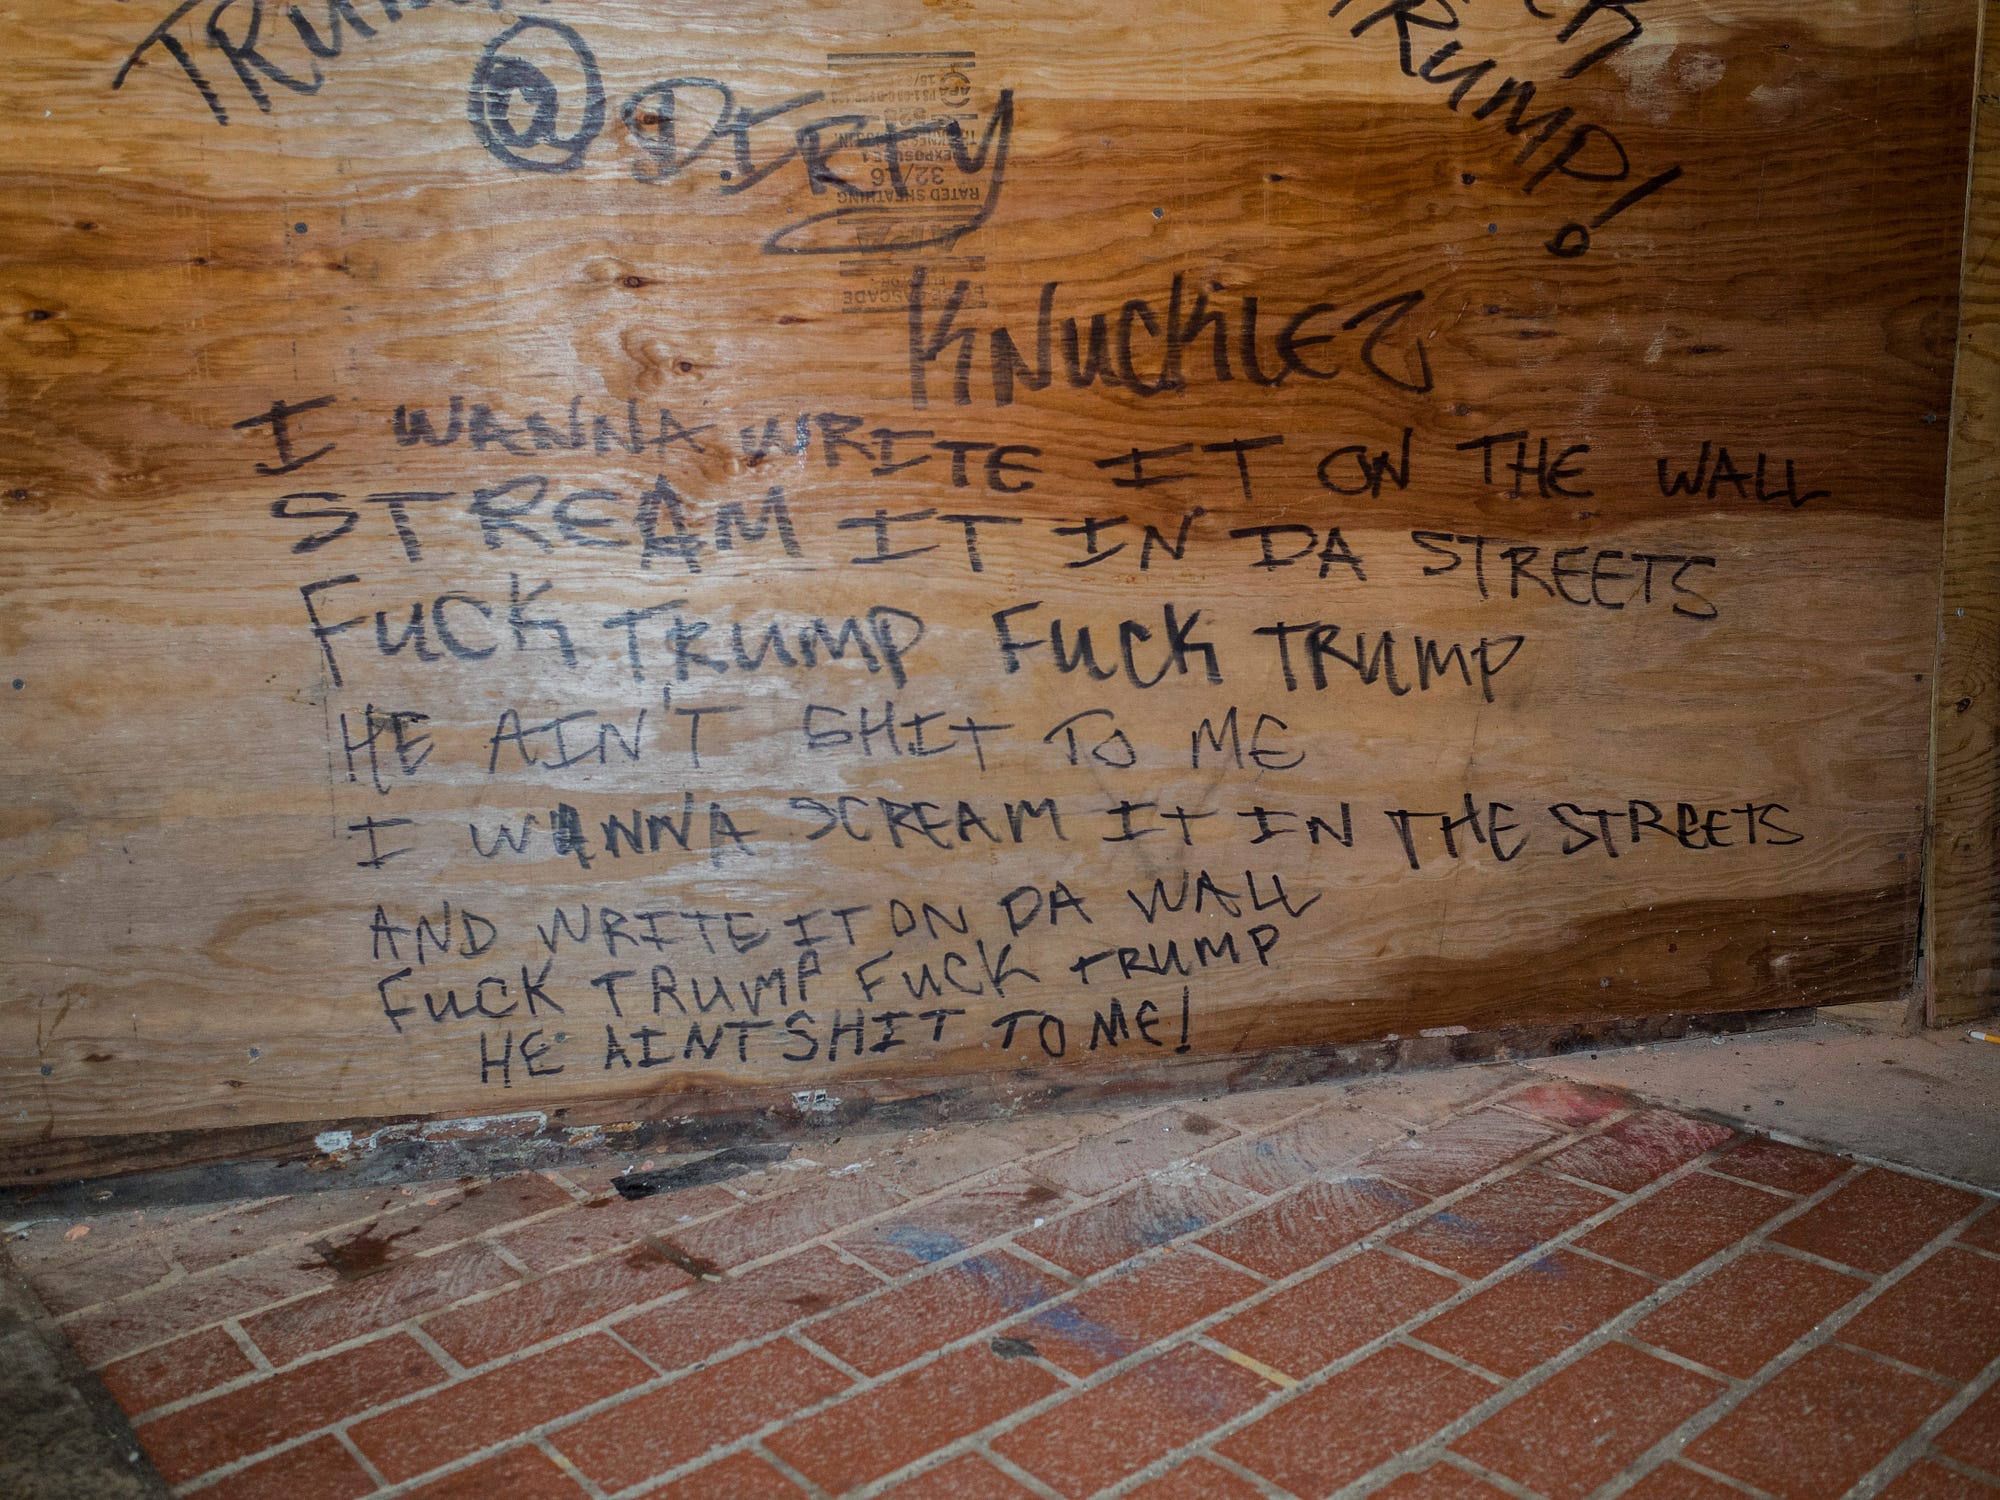 TRUM
CK
TRUMP!
@DIRTY
KNUCKLEZ
I WANNA WRITE IT ON THE WALL
STREAM IT IN DA STREETS
FUCK TRUMP FUCK TRUMP
HE AIN'T SHIT TO ME
I WANNA SCREAM IT IN THE STREETS
AND WRITE IT ON DA WALL
FUCK TRUMP FUCK TRUMP
HE AINT SHIT TO ME!
RATED SHEATHING
32/16
EXPOSURE 1